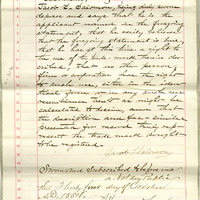 Jacob L. Salomon, being duly sworn
deposes and says that he is the
applicant named in the foregoing
statement, that he verily believes
that the foregoing statement is true
that he has at this time a right to the
use of the trade-mark therein des-
cribed, that no other person,
firm or corporation has the right
to such use, either in the iden-
tical form or in any such near
resemblance thereto as might be
calculated to deceive, and that
the description and fac-simile
presented for record truly rep-
resent the trade mark sought
to be registered.
Jacob L. Salomon
Sworn and Subscribed before me
a Notary Public
this Thirty first day of October
A.D. 188